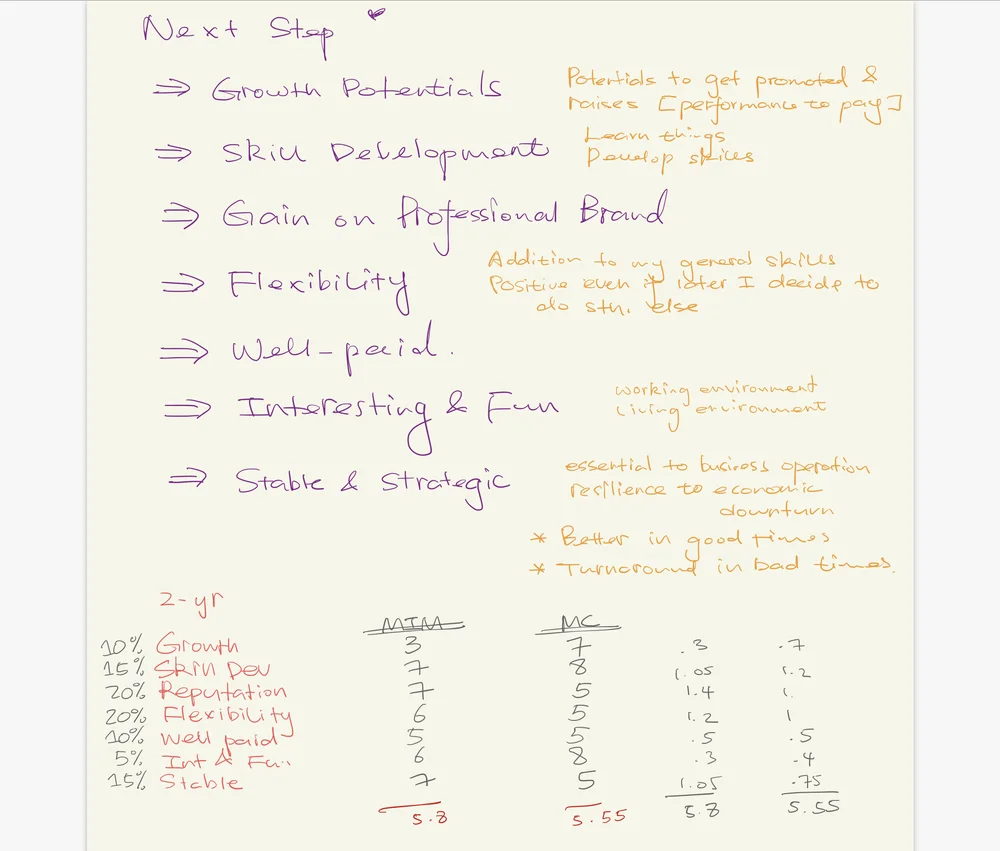 Next Step
⇒ Growth Potentials
Potentials to get promoted &
raises [performance to pay]
⇒ Skill Development
Learn things
Develop skills
⇒ Gain on Professional Brand
⇒ Flexibility
Addition to my general skills
Positive even if later I decide to
do sth. else
⇒ Well-paid.
⇒ Interesting & Fun
working environment
living environment
⇒ Stable & Strategic
essential to business operation
resilience to economic
downturn
* Better in good times
* Turnaround in bad times.
2-yr
MIM MC
10% Growth 3 7 .3 .7
15% Skill Dev 7 8 1.05 1.2
20% Reputation 7 5 1.4 1.
20% Flexibility 6 5 1.2 1
10% Well paid 5 5 .5 .5
5% Int & Fun 6 8 .3 .4
15% Stable 7 5 1.05 .75
5.8 5.55 5.8 5.55